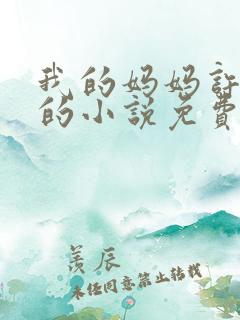 我的妈妈许
的小说免费
羡辰
未经同意禁止转载